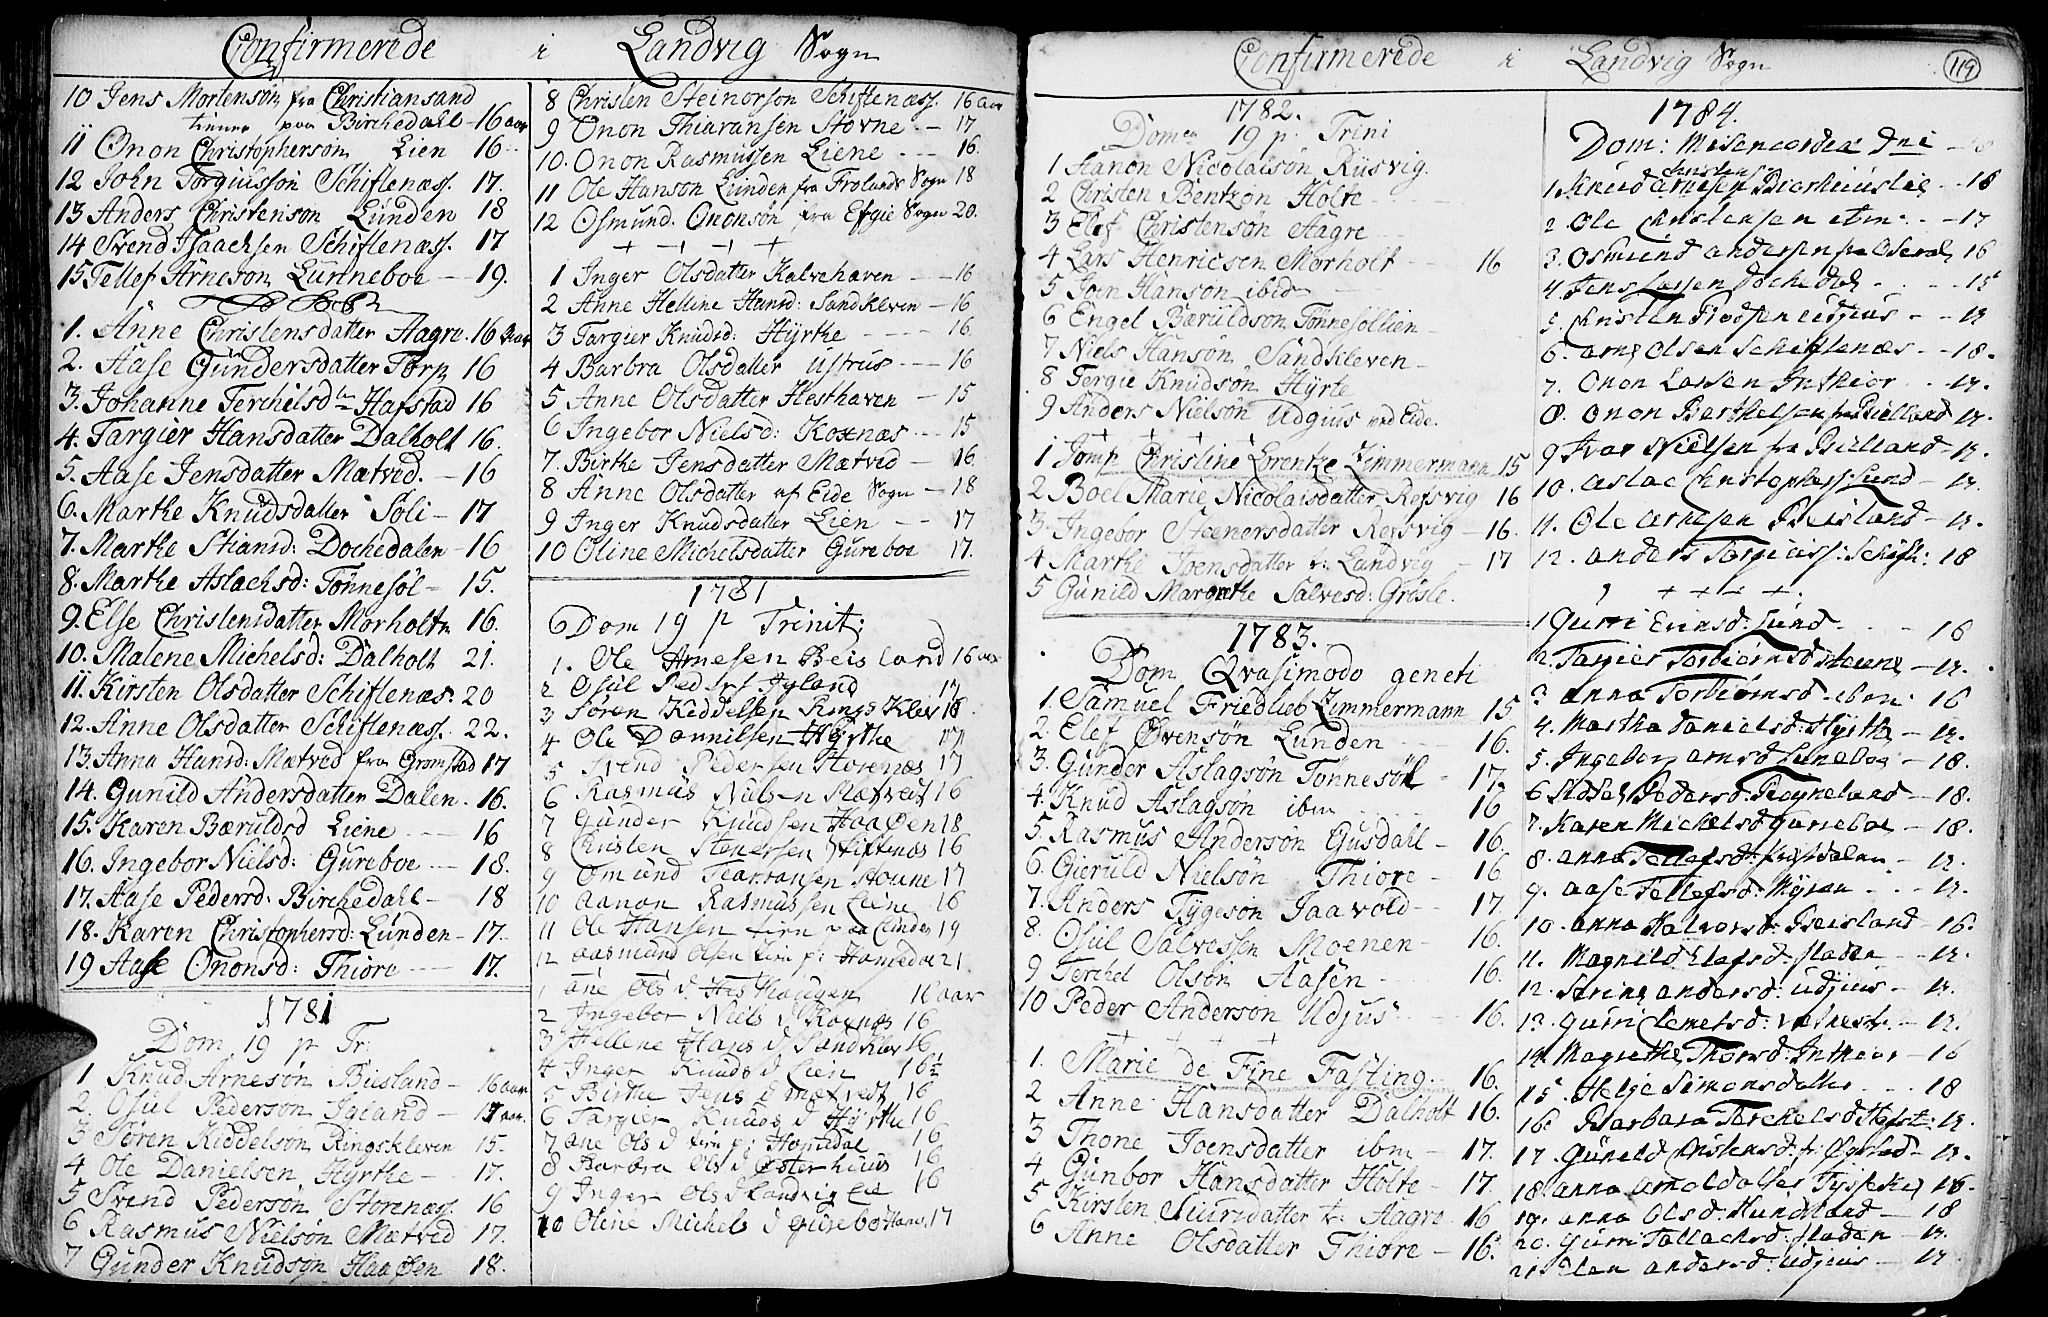 Confirmerede i Landvig Sogn
10 Jens Mortensøn fra Christiansand
tienner paa Birchedahl - 16 aar
11 Onon Christophersøn Lien 16
12 John Torgiussøn Schiftenæss. 17.
13 Anders Christensøn Lunden 18
14 Svend Isaachsen Schiftenæss. 17
15 Tellef Arnesøn Lunneboe - 19.
1. Anne Christensdatter Aagre. 16 aar
2. Aase Gundersdatter Torp 16
3. Johanne Terchelsdr Hafstad 16
4. Targier Hansdatter Dalholt 16.
5. Aase Jensdatter Mætved. - 16
6. Marthe Knudsdatter Søli - 17
7. Marthe Stiansd: Dochedalen - 16
8. Marthe Aslachsd: Tønnesøl - 15.
9. Else Christensdatter Morholtn 16.
10. Malene Michelsd: Dalholt 21.
11. Kirsten Olsdatter Schiftenæs. 20
12. Anne Olsdatter Schiftenæss. 22.
13. Anna Hansd: Mætved fra Gromstad 17
14. Gunild Andersdatter Dalen. 16.
15. Karen Bæruldsd Liene - 16
16. Ingebor Nielsd: Gureboe - 18.
17. Aase Pedersd: Birchedahl - 18
18. Karen Christophersd: Lunden - 17.
19 Aase Ononsd: Thiore - 17.
1781
Dom 19 p Tr:
1 Knud Arnesøn Biesland - 16 aar
2. Osul Pedersøn Igland - 17 aar.
3 Søren Kiddelsøn Ringskleven 15.
4. Ole Danielsen Hyrthe - 17.
5 Svend Pedersøn Storenæss. 16
6 Rasmus Nielsøn Mætved 17.
7 Gunder Knudsøn Haaøen 18.
8 Christen Steinorsøn Schiftenæss. 16 aar
9 Onon Thiaransen Stovne - 17
10. Onon Rasmussen Liene - 16.
11 Ole Hansøn Lunden fra Frolands Sogn 18
12 Osmund Ononsøn fra Efgie Sogn 20.
+ + + +
1 Inger Olsdatter Kalvehaven - 16
2 Anne Hellene Hansd: Sandkleven - 16
3 Targier Knudsd: Hyrthe - 16.
4 Barbra Olsdatter Ustrus - 16
5 Anne Olsdatter Hesthaven - 15
6 Ingebor Nielsd: Koxnæs - 15
7. Birthe Jensdatter Mætved - 16
8 Anne Olsdatter af Eide Sogn - 18
9 Inger Knudsdatter Lien - 17
10 Oline Michelsdatter Gureboe 17.
1781
Dom 19 p Trinit:
1. Ole Arnesen Beisland 16 aar
2 Osul Peders Igland 17
3 Søren Kiddelsen Ringsklev 18
4 Ole Dannilsen Hyrthe 17
5 Svend Pedersen Storenæs 17
6 Rasmus Nielsen Mætveit 16
7 Gunder Knudsen Haaøen 18
8 Christen Stenersen Skiftenæs 16
9 Omund Tearransen Stoune 17
10 Aanon Rasmussen Liene 16
11 Ole Hansen tien paa Lunden 19
12 Aasmund Olsen tien p: Homedal 21
1 ane Ols d Hesthaugen 16 aar
2 Ingebor Niels d Koxnæs 16
3 Hellene Hans d Sandklev 16
4 Inger Knuds d Lien 16½
5 Birthe Jens d Mætvedt 16
6 Targier Knuds d Hyrthe 16
7 ane Ols d tien p: Homedal 16
8 Barbra Ols d Østerhuus 16
9 Inger Ols d Landvig Eie 16
10 Oline Michels d Gureboe 17
Confirmerede i Landvig Sogn
119
1782.
Domca 19 p. Trini
1 Aanon Nicolaisøn Rusvig.
2 Christen Bentzøn Holte
3 Elef Christensøn Aagre
4 Lars Henricsen Morholt 16
5 Joen Hansøn ibid
6 Engel Bæruldsøn Tønnesollien
7 Niels Hansøn Sandkleven
8 Tergie Knudsøn Hyrte
9 Anders Nielsøn Udgius ved Eide.
+ + + +
1 Jomfr Christine Lorentze Zimmermann 15
2 Boel Marie Nicolaisdatter Refsvig 16
3. Ingebor Steenersdatter Refsvig - 16.
4 Marthe Joensdatter v: Landvig - 17
5 Gunild Margrethe Salvesd: Grøsle.
1783.
Dom Qvasimodo geneti
1. Samuel Friedlieb Zimmermann 15
2. Elef Øvensøn Lunden 16.
3. Gunder Aslagsøn Tønnesøl - 17.
4. Knud Aslagsøn ibm 16
5. Rasmus Andersøn Gusdahl - 16.
6. Gieruld Nielsøn Thiore - 16
7. Anders Tygesøn Jaavold - 17.
8. Osul Salvessen Moenen - 16.
9 Terchel Olsøn Aasen - 16.
10 Peder Andersøn Udjus 16.
+ + + +
1. Marie de Fine Fasting. 16.
2 Anne Hansdatter Dalholt 16.
3 Thone Joensdatter ibm - 17.
4 Gunbor Hansdatter Holte - 17.
5 Kirsten Siursdatter v: Aagre 16
6 Anne Olsdatter Thiore - 16.
1784.
Dom: Misericordia Dni
1. Knud Arnesen Christens Bierhuuslie - 16
2. Ole Christensen - 17
3. Osmund Andersen fra 16
4. Jens Larsen Dochedal 15
5. Christen Tredsen Udjius - 17.
6. Arne Olsen Schiftenæs - 18.
7. Onon Larsen Inthior 17.
8. Onon Berthelsen fra Bielland 17.
9 Ivar Nielsen fr Bielland - 17.
10. Aslac Christophers: Lund - 17.
11. Ole Arnesen Beisland - 17.
12. Anders Torgius: Schift: 18
+ + + +
1 Gurri Evensd: Lund - 16
2. Targier Torbiørnsd Steene - 17.
3 Anna Torbiørnsd ibm: 16
4. Martha Danielsd: Hyrthe - 17.
5. Ingeborg Arnsd Luneboe - 18.
6 Sidsel Pedersd: Røyneland - 18.
7. Karen Michelsd Gureboe - 18.
8. Anna Tellefsd: - 17.
9. Aase Tellefsd: Myren - 17.
10. Anna Halvorsd: Beisland - 16.
11. Magnild Elefsd: Fladen - 17.
12. Serine Andersd: Udjius - 17.
13. Gurri Clemetsd: - 17.
14. Magrethe Thorsd: Inthior - 16
15. Helje Simonsdatter 18
16. Barbara Terchelsd Hafst: 17.
17. Gunild Christensd: fr: - 17.
18. Anna Arnoldatter 16.
19. Anna Olsd: Hundland - 18
20. Gurri Tallachsd: Fladen - 17.
21. Elen Andersd: Udjius - 17